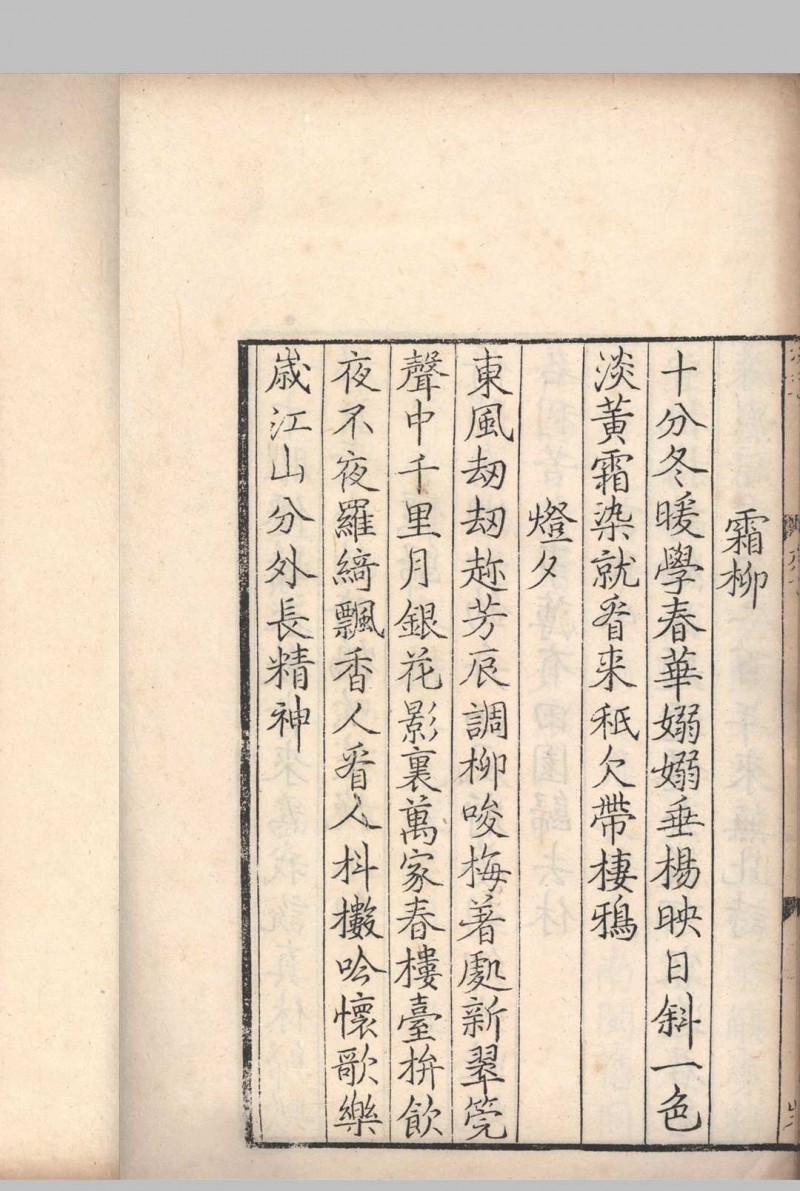 霜柳
十分冬暖學春華嫋嫋垂楊映日斜一色
淡黃霜染就看来秖欠帶棲鴉
燈夕
東風刼刼趂芳辰調柳唆梅著處新翠筦
聲中千里月銀花影裏萬家春樓臺拚飲
夜不夜羅綺飄香人看人抖擻吟懷歌樂
歳江山分外長精神